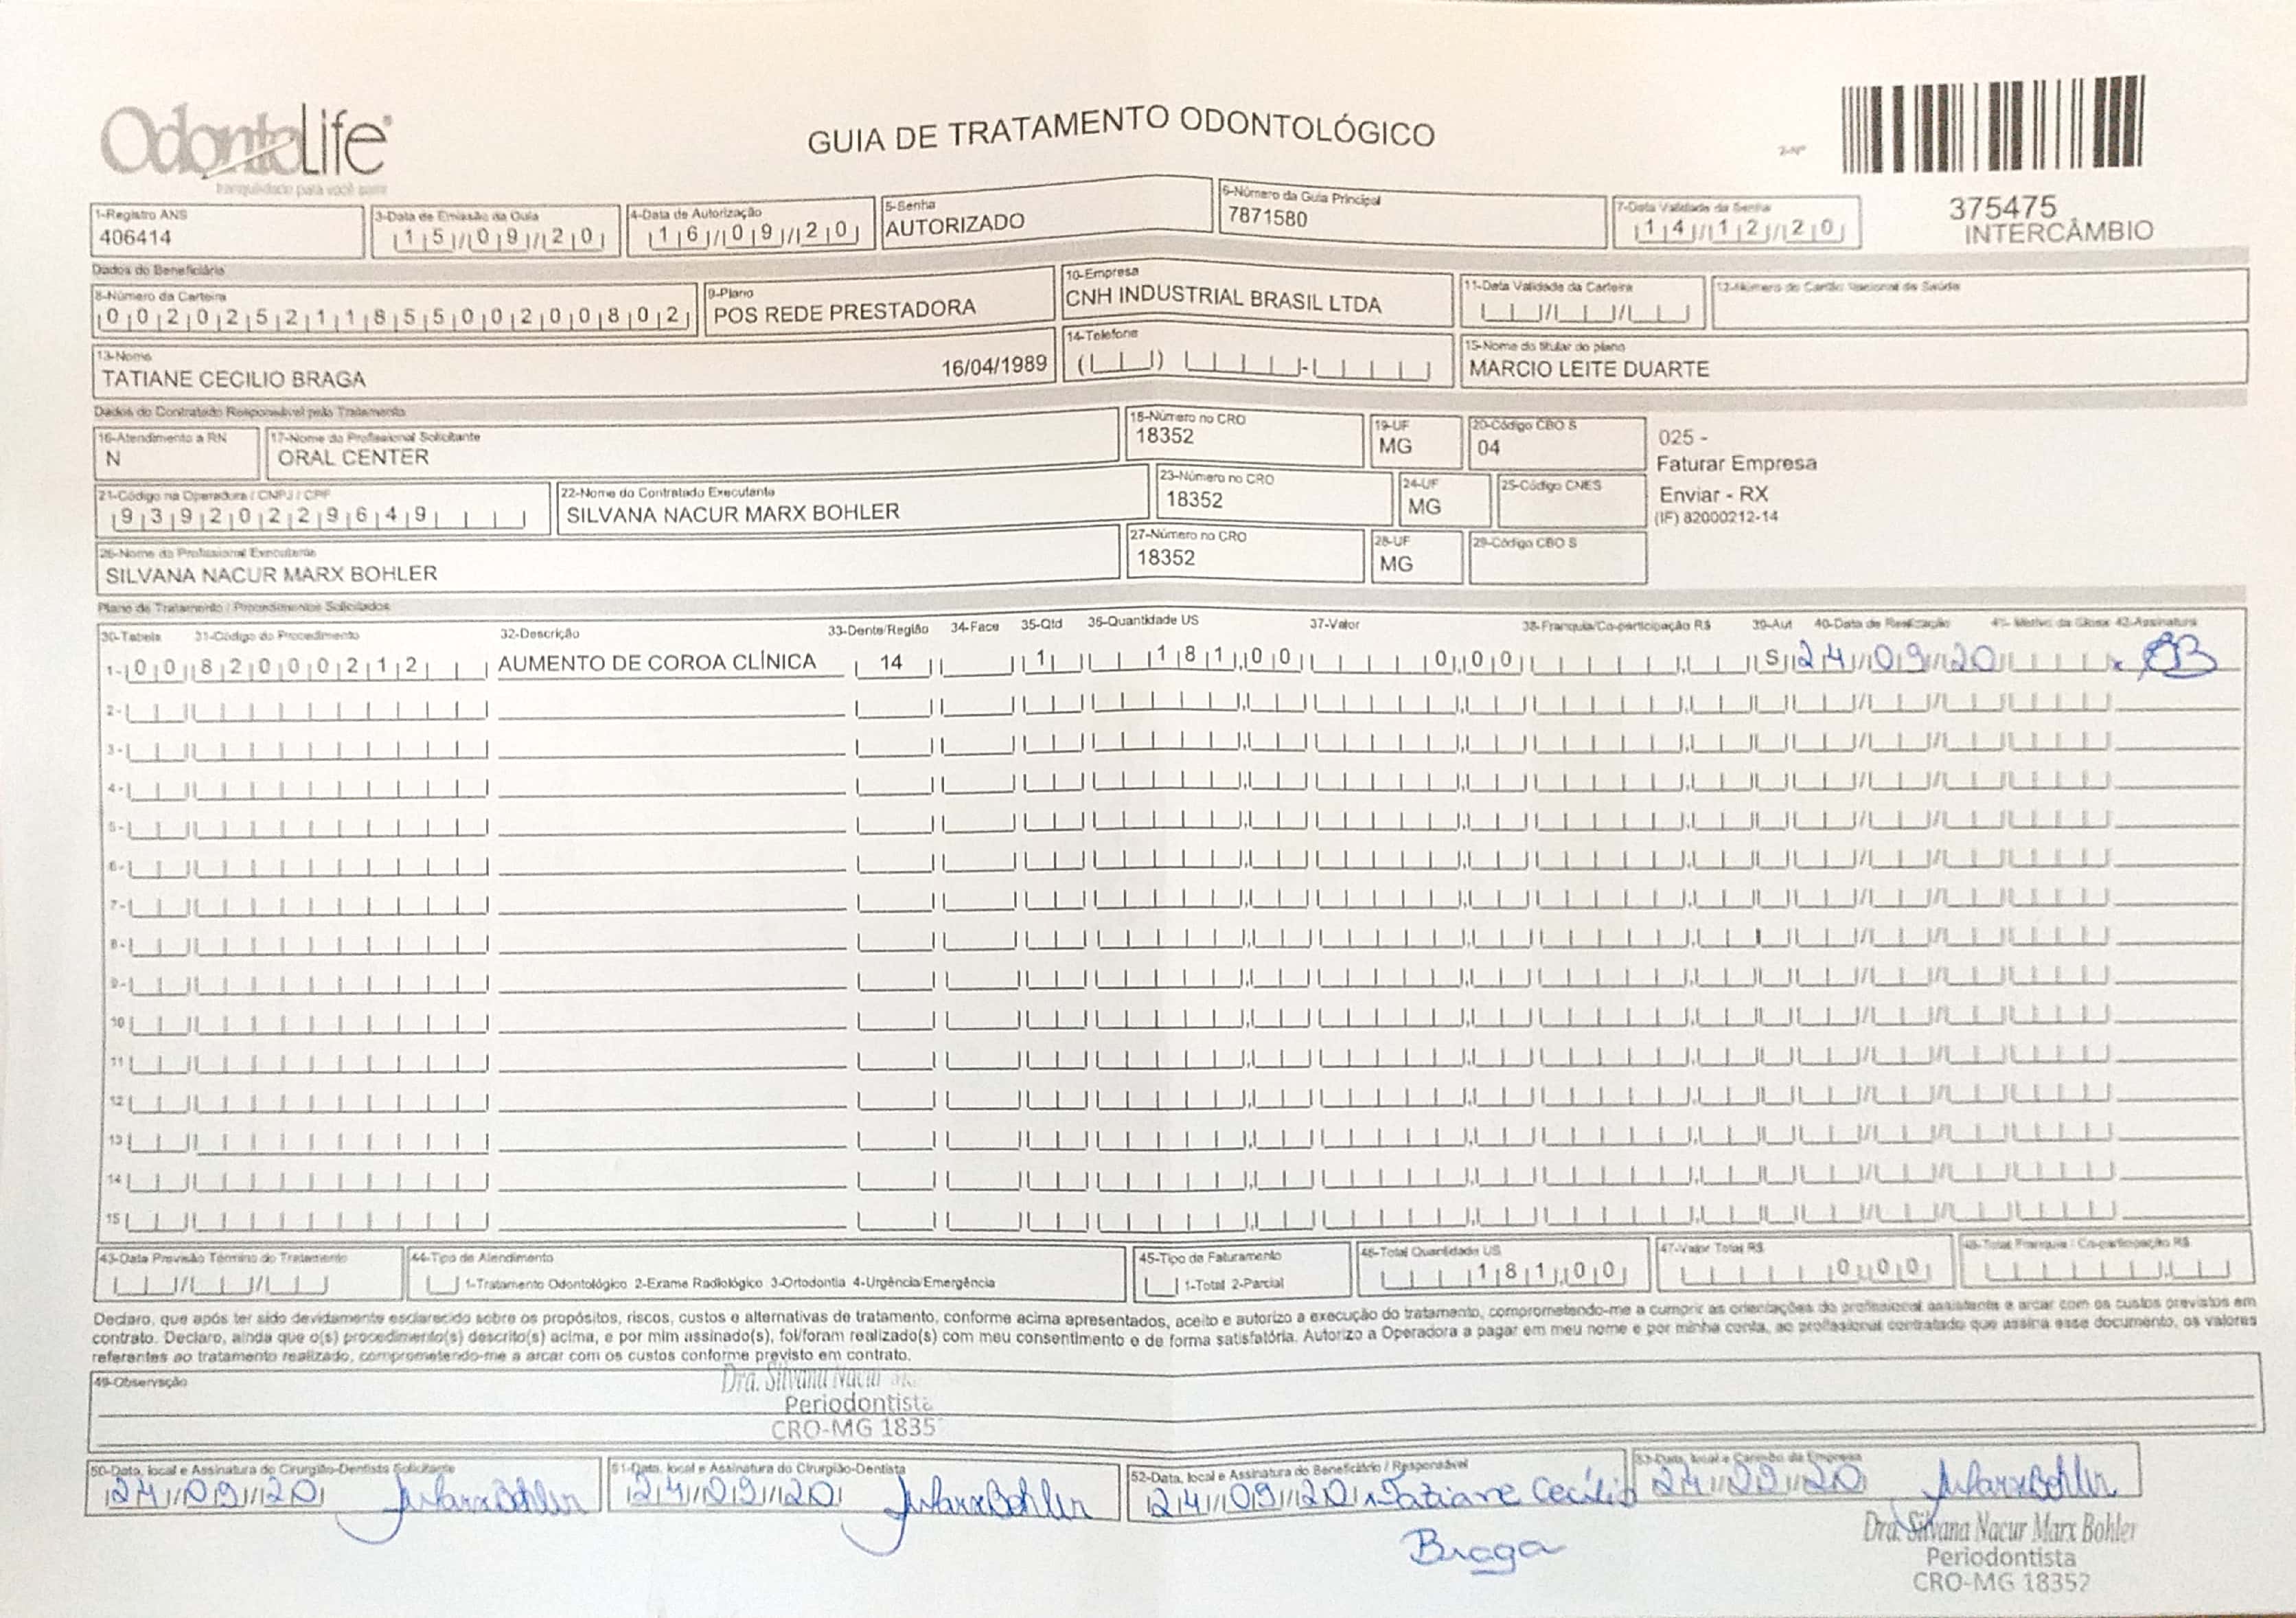 OdontoLife
tranquilidade para você sorrir
GUIA DE TRATAMENTO ODONTOLÓGICO
2-Nº
375475
INTERCÂMBIO
1-Registro ANS
406414
3-Data de Emissão da Guia
15/09/20
4-Data de Autorização
16/09/20
5-Senha
AUTORIZADO
6-Número da Guia Principal
7871580
7-Data Validade da Senha
14/12/20
Dados do Beneficiário
8-Número da Carteira
00202521185500200802
9-Plano
POS REDE PRESTADORA
10-Empresa
CNH INDUSTRIAL BRASIL LTDA
11-Data Validade da Carteira
12-Número do Cartão Nacional de Saúde
13-Nome
TATIANE CECILIO BRAGA 16/04/1989
14-Telefone
15-Nome do titular do plano
MARCIO LEITE DUARTE
Dados do Contratado Responsável pelo Tratamento
16-Atendimento a RN
N
17-Nome do Profissional Solicitante
ORAL CENTER
18-Número no CRO
18352
19-UF
MG
20-Código CBO S
04
025 -
Faturar Empresa
Enviar - RX
(IF) 82000212-14
21-Código na Operadora / CNPJ / CPF
93920229649
22-Nome do Contratado Executante
SILVANA NACUR MARX BOHLER
23-Número no CRO
18352
24-UF
MG
25-Código CNES
26-Nome do Profissional Executante
SILVANA NACUR MARX BOHLER
27-Número no CRO
18352
28-UF
MG
29-Código CBO S
Plano de Tratamento / Procedimentos Solicitados
30-Tabela 31-Código do Procedimento 32-Descrição 33-Dente/Região 34-Face 35-Qtd 36-Quantidade US 37-Valor 38-Franquia/Co-participação R$ 39-Aut 40-Data de Realização 41- Motivo da Glosa 42-Assinatura
1- 00 82000212 AUMENTO DE COROA CLÍNICA 14 1 181,00 0,00 S 24/09/20
2-
3-
4-
5-
6-
7-
8-
9-
10
11
12
13
14
15
43-Data Previsão Término do Tratamento
44-Tipo de Atendimento
1-Tratamento Odontológico 2-Exame Radiológico 3-Ortodontia 4-Urgência/Emergência
45-Tipo de Faturamento
1-Total 2-Parcial
46-Total Quantidade US
181,00
47-Valor Total R$
0,00
48-Total Franquia / Co-participação R$
Declaro, que após ter sido devidamente esclarecido sobre os propósitos, riscos, custos e alternativas de tratamento, conforme acima apresentados, aceito e autorizo a execução do tratamento, comprometendo-me a cumprir as orientações do profissional assistente e arcar com os custos previstos em
contrato. Declaro, ainda que o(s) procedimento(s) descrito(s) acima, e por mim assinado(s), foi/foram realizado(s) com meu consentimento e de forma satisfatória. Autorizo a Operadora a pagar em meu nome e por minha conta, ao profissional contratado que assina esse documento, os valores
referentes ao tratamento realizado, comprometendo-me a arcar com os custos conforme previsto em contrato.
49-Observação
Dra. Silvana Nacur
Periodontista
CRO-MG 1835
50-Data, local e Assinatura do Cirurgião-Dentista Solicitante
24/09/20 MarxBohler
51-Data, local e Assinatura do Cirurgião-Dentista
24/09/20 MarxBohler
52-Data, local e Assinatura do Beneficiário / Responsável
24/09/20 Tatiane Cecílio
Braga
53-Data, local e Carimbo da Empresa
24/09/20 MarxBohler
Dra. Silvana Nacur Marx Bohler
Periodontista
CRO-MG 18352